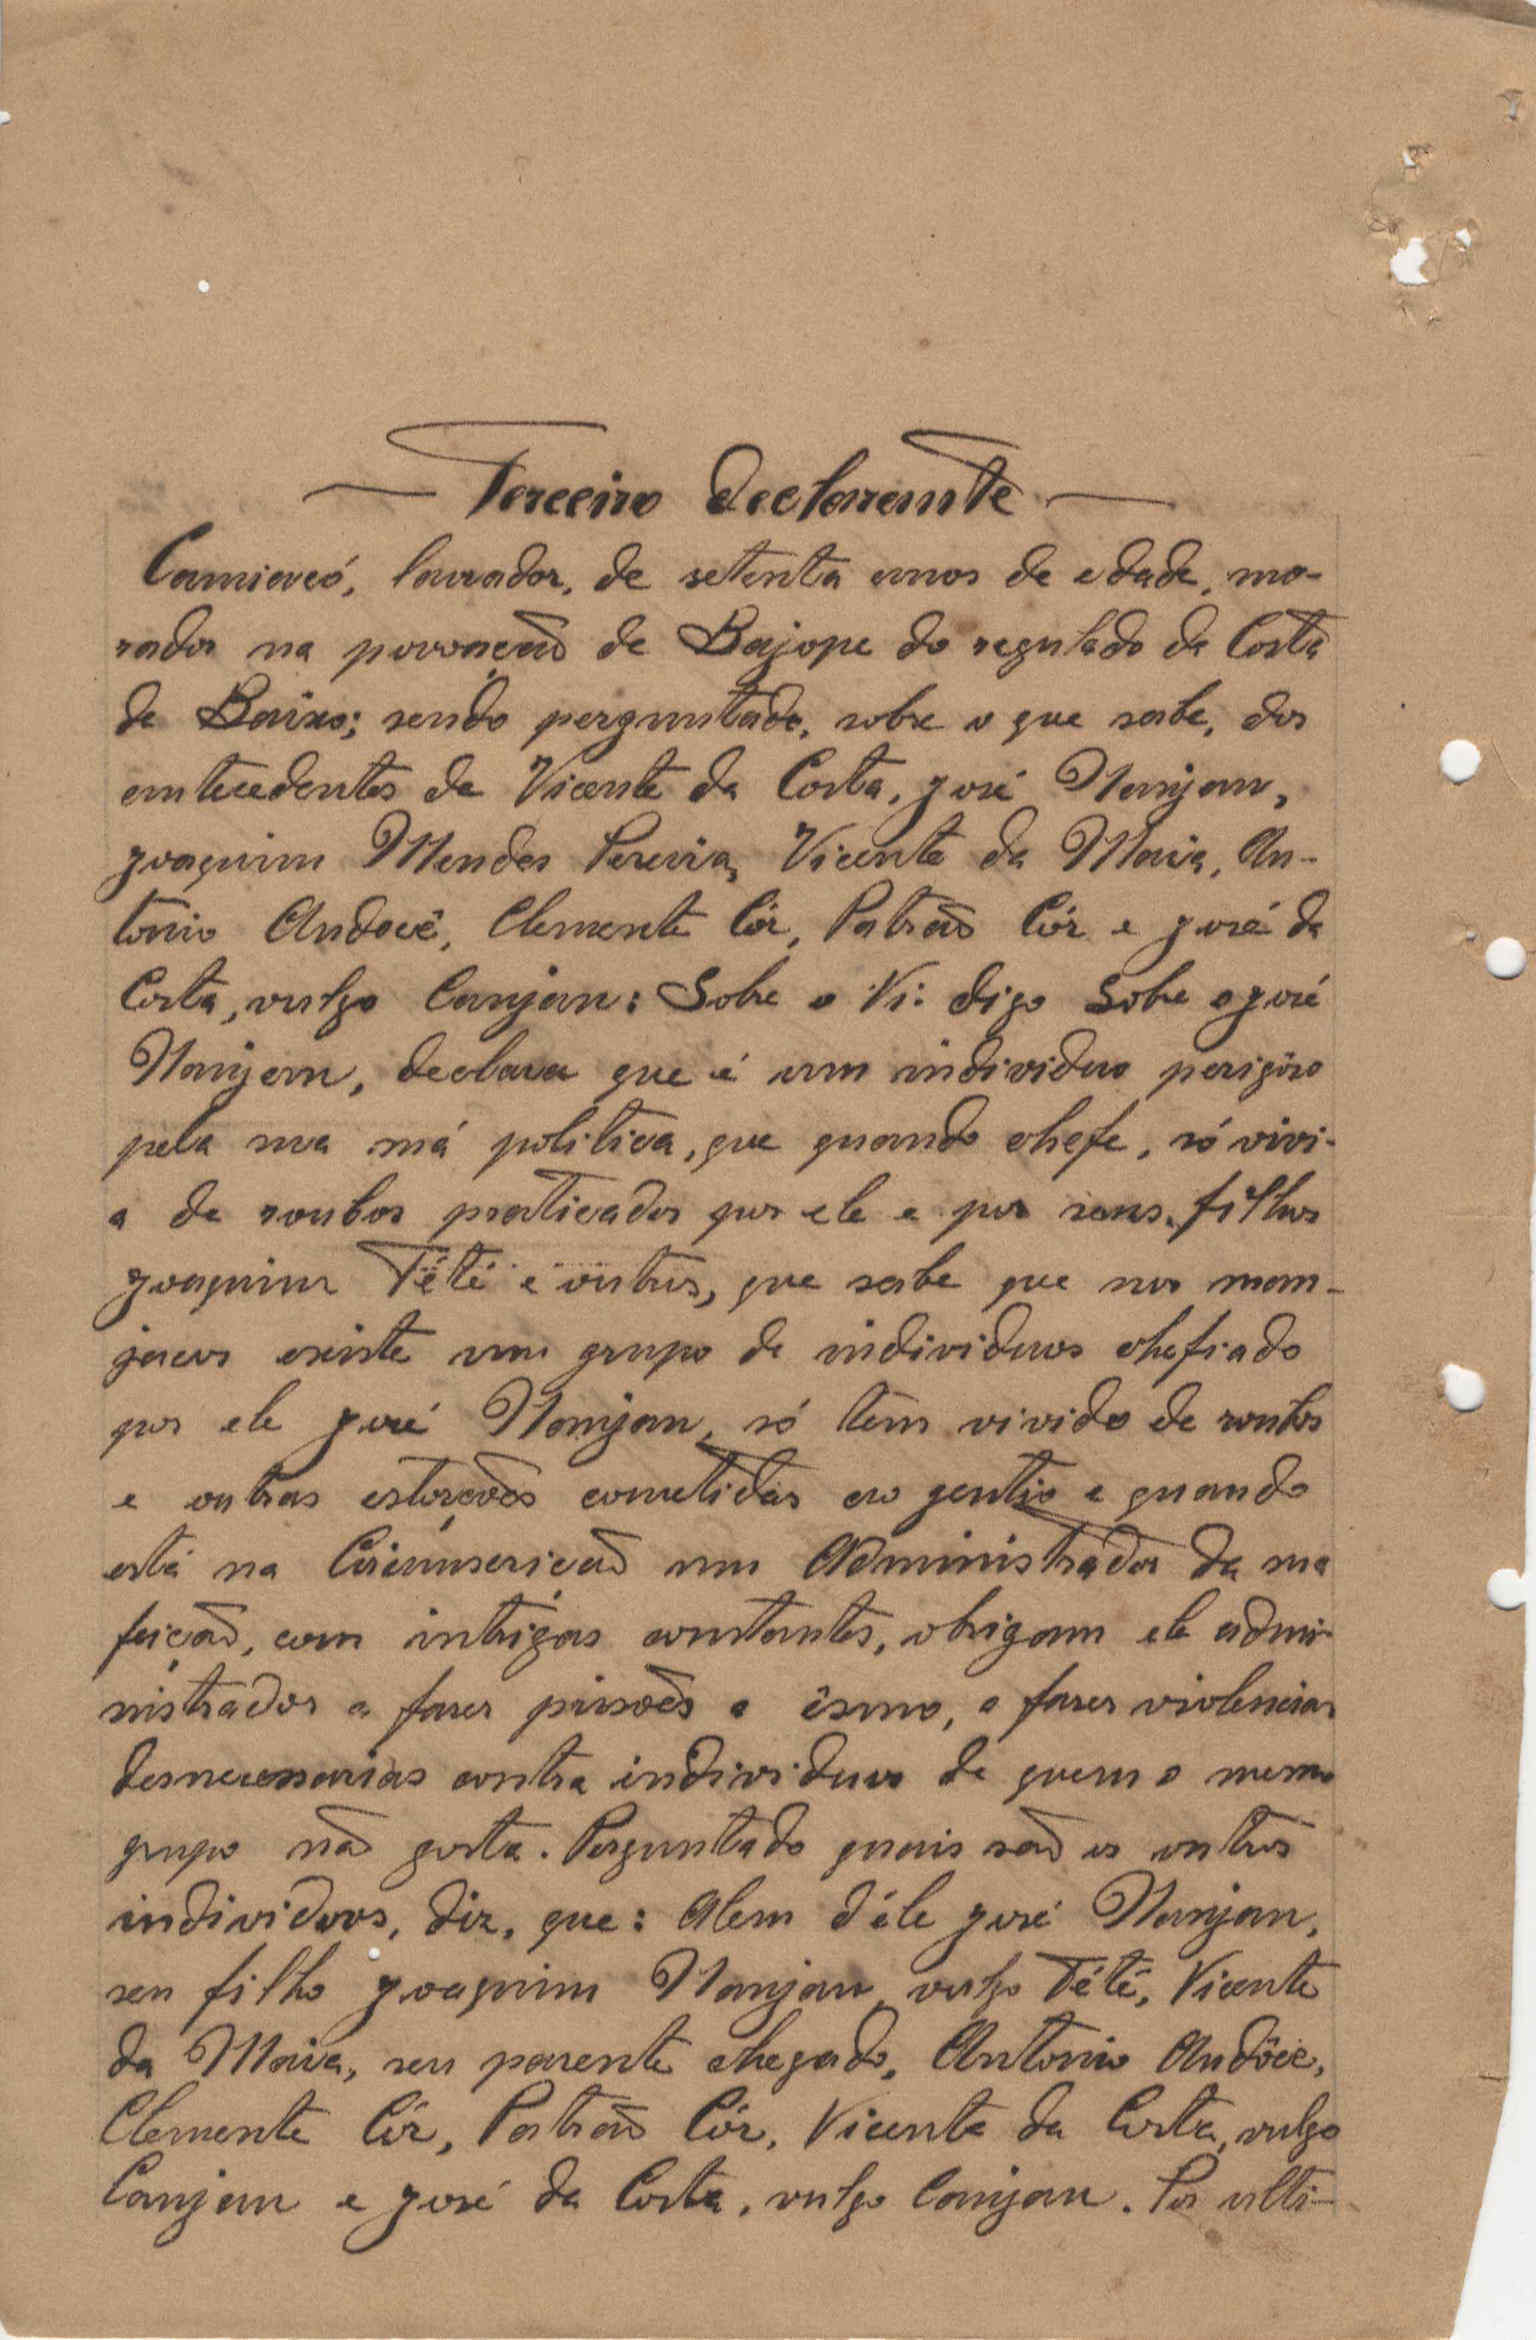 Terceiro declarante
Camiacó, lavrador, de setenta anos de edade, mo-
rador na povoação de Bajope do regulado da Costa
de Baixo; sendo perguntado, sobre o que sabe, dos
antecedentes de Vicente da Costa, José Nanjan,
Joaquim Mendes Pereira, Vicente da Maia, An-
tónio Andocê, Clemente Cór, Patrão Cór e José da
Costa, vulgo Canjan: Sobre o Vi: digo Sobre o José
Nanjan, declara que é um individuo perigôso
pela sua má politica, que quando chefe, só vivi-
a de roubos praticados por ele e por seus filhos
Joaquim Tété e outros, que sabe que nos man-
jacos existe um grupo de individuos chefiado
por ele José Nanjan, só têm vivido de roubos
e outras estorções cometidas ao gentio e quando
está na Circunscrição um Administrador da sua
feição, com intrigas constantes, obrigam ele admi-
nistrador a fazer prisões a êsmo, a fazer violencias
desnecessarias contra individuos de quem o mesmo
grupo não gosta. Perguntado quais são os outros
individuos, diz, que: Alem d'éle José Nanjan,
seu filho Joaquim Nanjan, vulgo Tété, Vicente
da Maia, seu parente chegado, Antonio Andôce,
Clemente Cór, Patrão Cór, Vicente da Costa, vulgo
Canjan e José da Costa, vulgo Canjan. Por ulti-